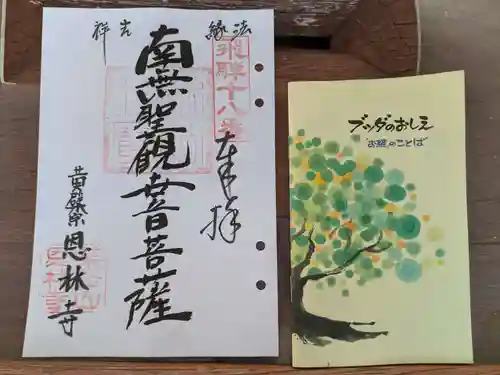 法縁
吉祥
飛騨十八番
奉拝
南無聖観世音菩薩
黄檗宗
恩林寺
ブッダのおしえ
「お経」のことば